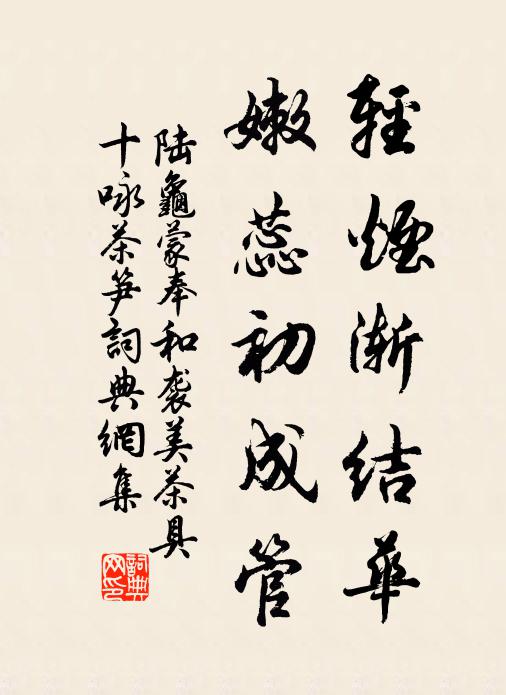 輕煙漸結華
嫩蕊初成管
陆龜蒙奉和袭美茶具
十咏茶笋詞典網集
詞典
网印